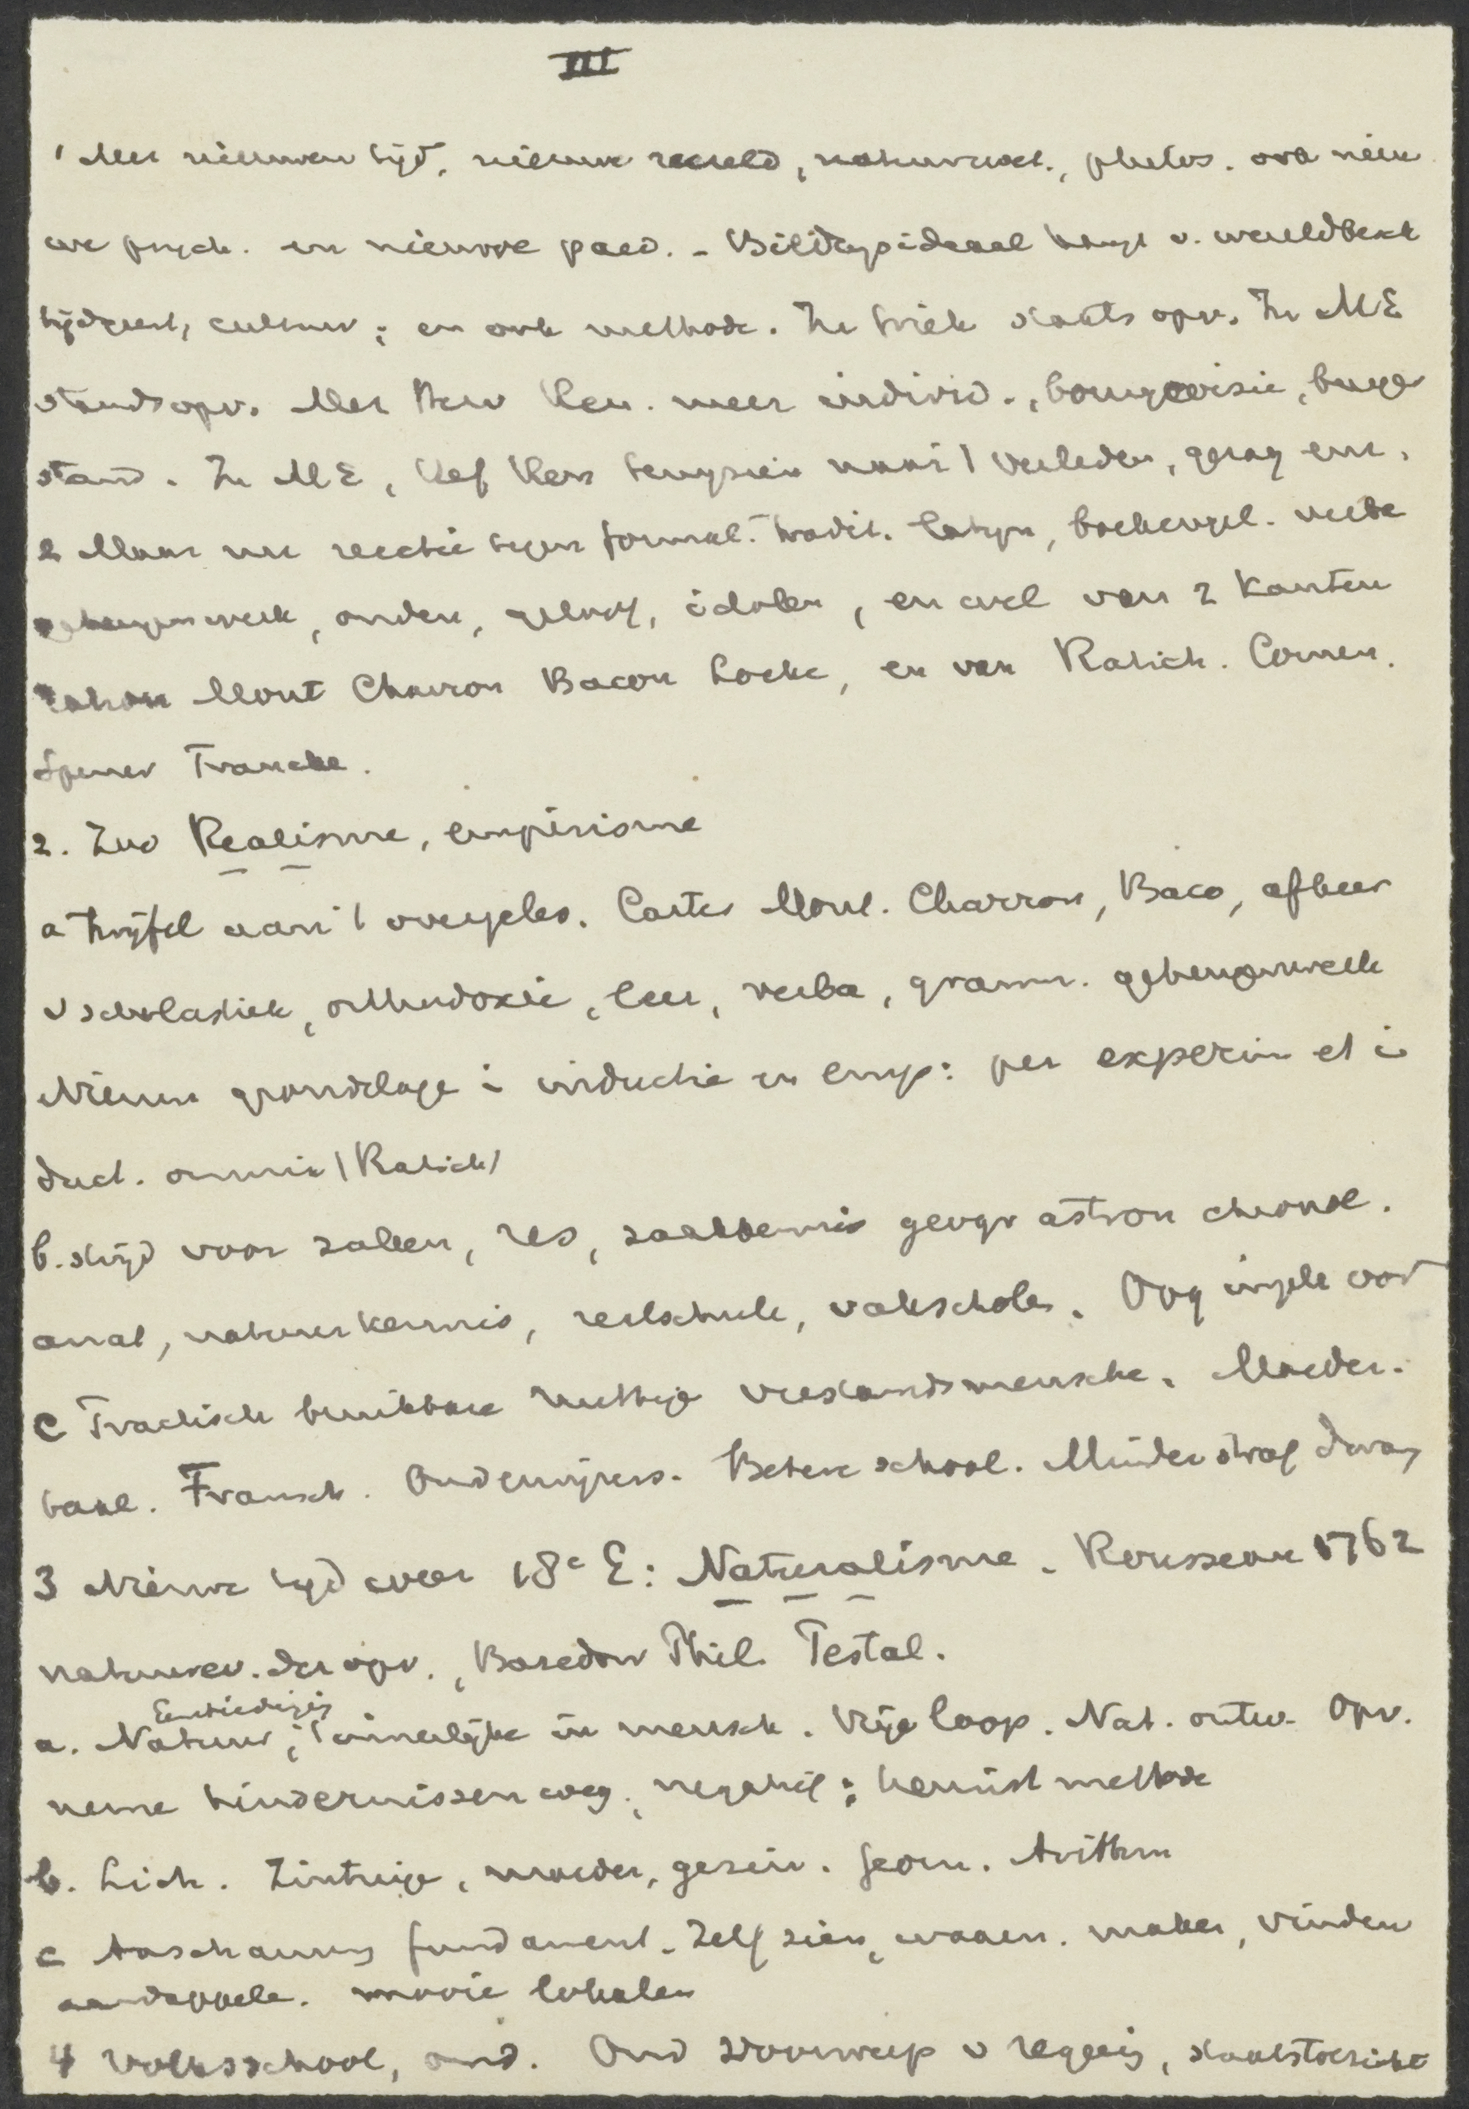 III
1 Met nieuwen tijd, nieuwe wereld, natuurwet., philos. ook nieu
we psych. en nieuwe paed. - Bildgsideaal hangt v. wereldbesch
tijdgeest, cultuur; en ook methode. In Griek staats opv. In ME
standsopv. Met Hum Ren. meer individ., bourgeoisie, burger
stand. In ME, Ref Ren teruggrien naar 't verleden, gezag enz.
2 Maar nu reactie tegen formal. tradit. Latijn, boekengel. verba
geheugenwerk, ouden, geloof, idolen, en wel van 2 kanten
Mont Charron Bacon Locke, en van Ratich. Comen.
Spener Francke.
2. Zoo Realisme, empirisme
a twijfel aan 't overgelev. Cartes Mont. Charron, Baco, afkeer
v scholastiek, orthodoxie, leer, verba, gramm. geheugenwerk
Nieuwe grondslag in inductie en emp: per experim et in
duct. omnia (Ratich)
b. strijd voor zaken, res, zaakkennis geogr astron chronol.
anat, natuurkennis, realschule, vakscholen. Oog ingele voor
c Practisch bruikbare nuttige verstandsmensche. Moeder-
taal. Fransch. Onderwijzers. Betere school. Minder straf dwang
3 Nieuwe tijd over 18e E: Naturalisme. Rousseau 1762
natuurev. der opv., Basedow Phil. Pestal.
Eerbiediging
a. Natuur, 't innerlijke in mensch. Vrije loop. Nat. ontw. Opv.
neme hindernissen weg, negatief; heurist methode
b. Lich. Zintuige, moeder, gezin. Geom. Arithm
c Anschauung fundament. Zelf zien, waarn. maken, vinden
aardappele. mooie lokalen
4 Volksschool, ond. Ond voorwerp v regeerg, staatstoezicht